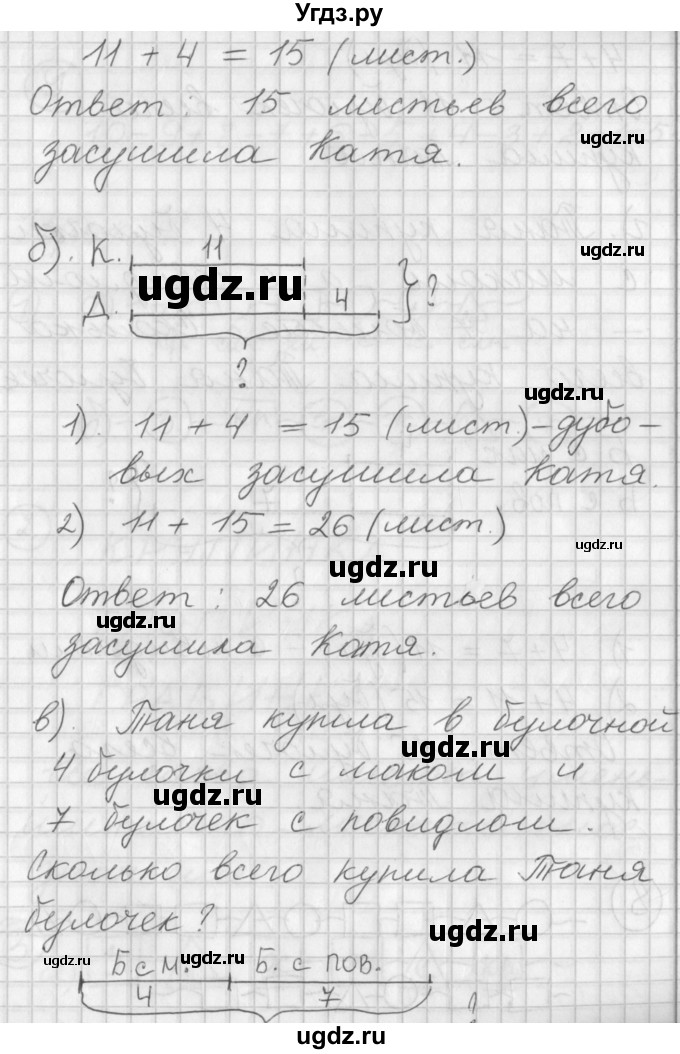 Угдз.ру
11 + 4 = 15 (лист.)
Ответ: 15 листьев всего
ugdz.ru
засушила Катя.
ugdz.ru
б). К. 11
ugdz.ru
Д. 4 } ?
?
ugdz.ru
1). 11 + 4 = 15 (лист.) - дубо-
вых засушила Катя.
2) 11 + 15 = 26 (лист.)
ugdz.ru
ugdz.ru
Ответ: 26 листьев всего
ugdz.ru
засушила Катя.
в). Таня купила в булочной
ugdz.ru
4 булочки с маком и
ugdz.ru
7 булочек с повидлом.
Сколько всего купила Таня
булочек?
ugdz.ru
ugdz.ru Б с м. ugdz.ru Б. с пов.
4 7
?
ugdz.ru